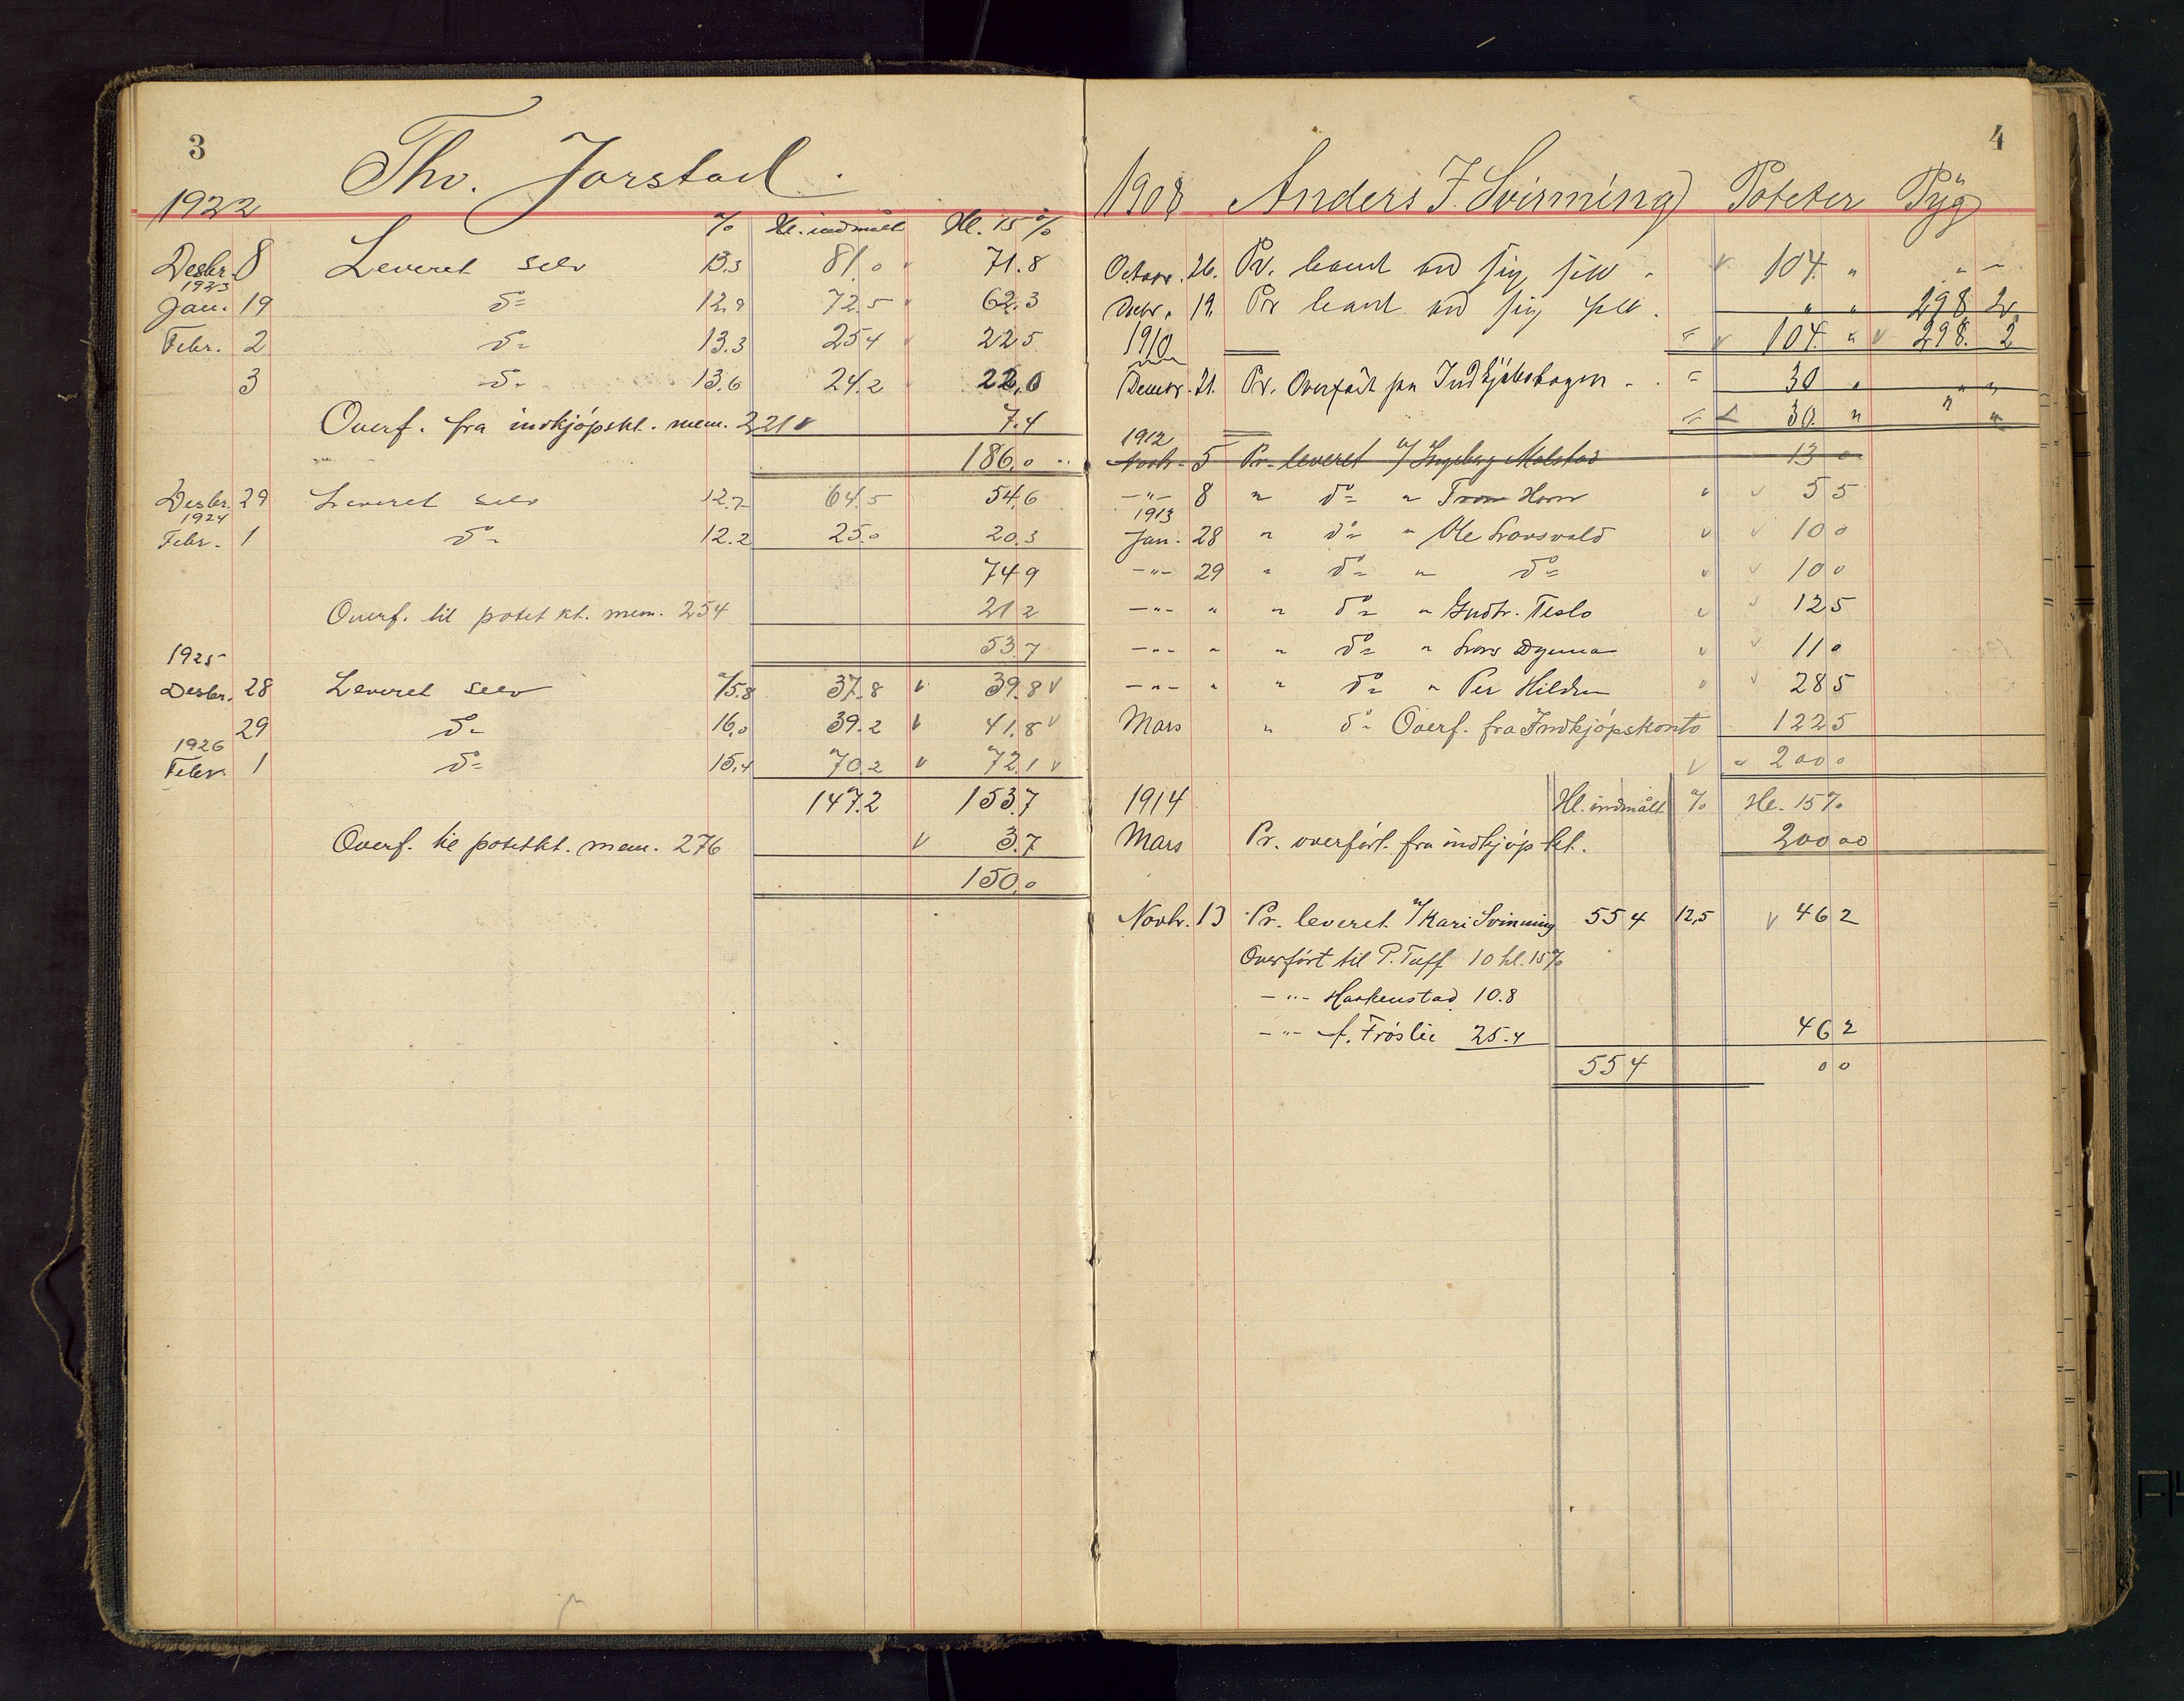 3
Thv. Jorstad.
1922
% Hl. indmålt Hl. 15%
Desbr. 8 Leveret selv 13.3 81.0 71.8
1923
Jan. 19 do 12.9 72.5 62.3
Febr. 2 do 13.3 25.4 22.5
3 do 13.6 24.2 22.0
Overf. fra indkjøpskt. mem. 221 7.4
186.0
Desbr. 29 Leveret selv 12.7 64.5 54.6
1924
Febr. 1 do 12.2 25.0 20.3
74.9
Overf. til potetkt. mem. 254 21.2
53.7
1925
Desbr. 28 Leveret selv 15.8 37.8 v 39.8 v
29 do 16.0 39.2 v 41.8 v
1926
Febr. 1 do 15.4 70.2 v 72.1 v
147.2 153.7
Overf. til potetkt. mem. 276 v 3.7
150.0
4
1908 Anders J. Svinning Poteter Byg
Octobr. 26. Pr. levert ved sig selv. v 104. " " -
Decbr. 19. Pr levert ved sig selv. " " 298 2
1910 = v 104. " v 298. 2
Decmbr. 21. Pr. Overført fra Indkjøbsbogen = 30 " " "
= 30. " " "
1912
Novbr. 5 Pr. leveret v/ Ingeberg Molstad 13 0
-"- 8 " do " Horn v 5 5
1913
Jan. 28 " do " Ole v 10 0
-"- 29 " do " do v 10 0
-"- " " do " Gudbr. Teslo v 12 5
-"- " " do " Lars Dynna v 11 0
-"- " " do " Per Hilden v 28 5
Mars " do Overf. fra Indkjøpskonto 122 5
v " 200 0
1914 Hl. indmålt % Hl. 15%
Mars Pr. overført fra indkjøpskt. 200 00
Novbr. 13 Pr. leveret v/ Kari Svinning 55 4 12,5 v 46 2
Overført til P. Tuff 10 hl. 15%
-"- Haakenstad 10.8
-"- A. Frøslie 25.4 46 2
55 4 0 0